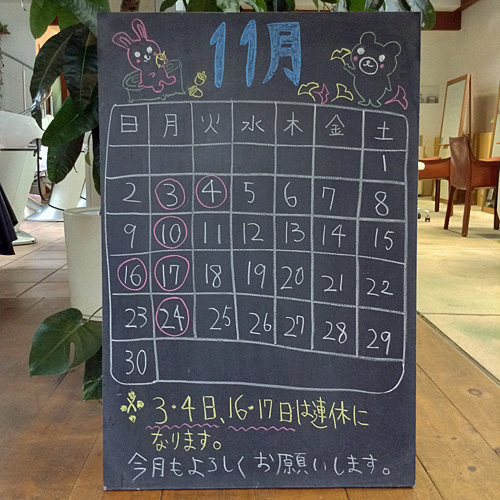 11月
日 月 火 水 木 金 土
1
2 3 4 5 6 7 8
9 10 11 12 13 14 15
16 17 18 19 20 21 22
23 24 25 26 27 28 29
30
3・4日、16・17日は連休に
なります。
今月もよろしくお願いします。